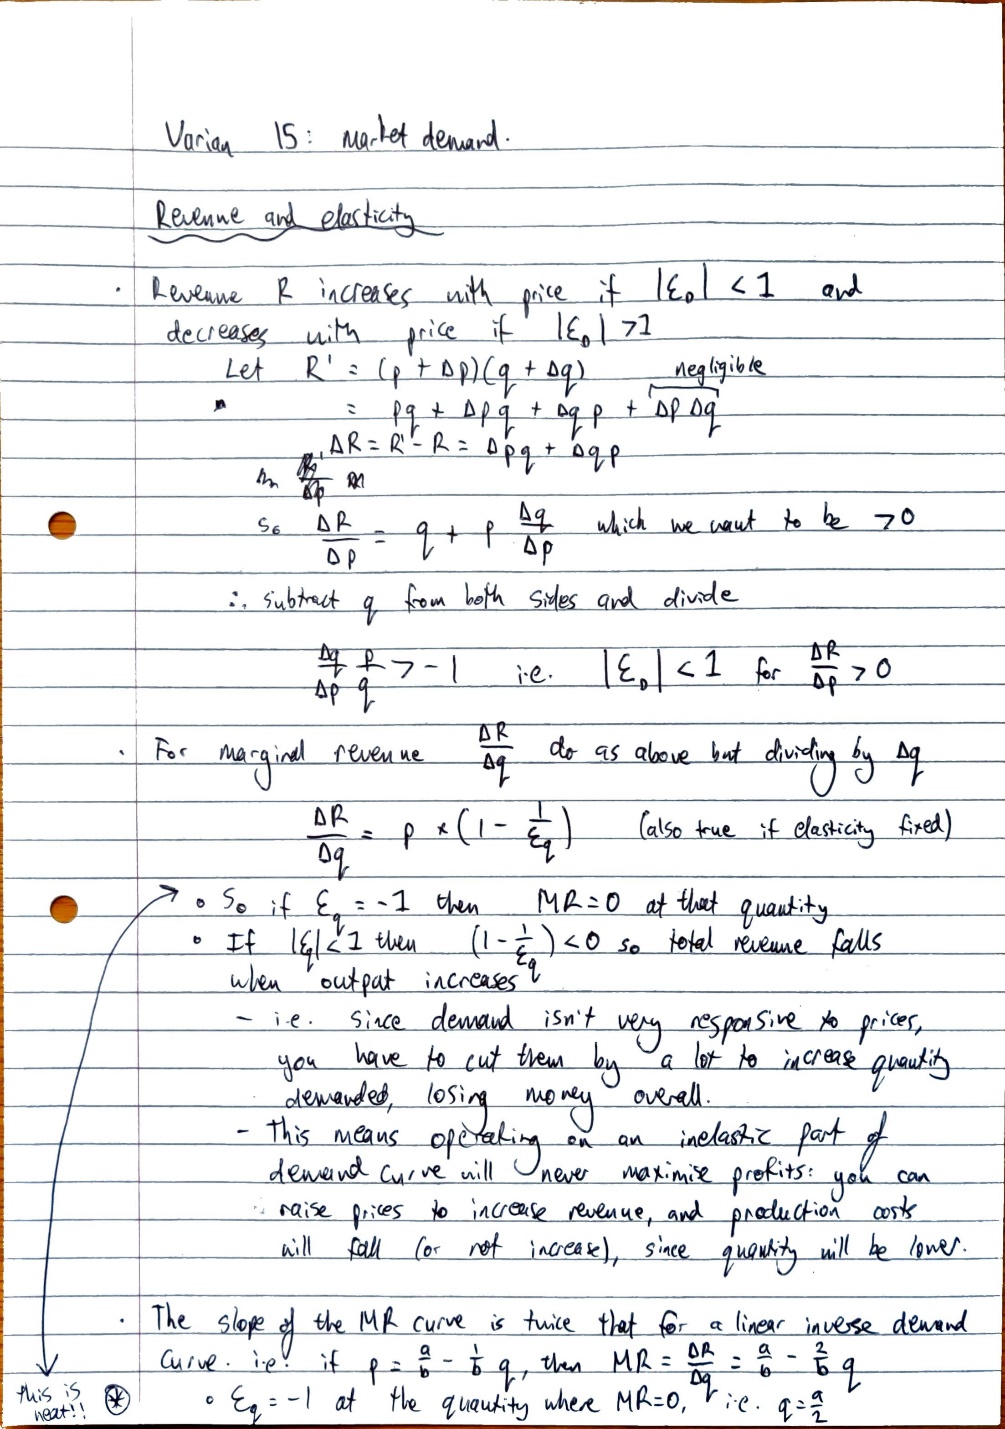 Varian 15: market demand.
Revenue and elasticity
· Revenue R increases with price if |ε_D| < 1 and
decreases with price if |ε_D| > 1
Let R' = (p + Δp)(q + Δq) negligible
= pq + Δp q + Δq p + Δp Δq
ΔR = R' - R = Δp q + Δq p
So ΔR/Δp = q + p Δq/Δp which we want to be > 0
∴ subtract q from both sides and divide
Δq/Δp p/q > -1 i.e. |ε_D| < 1 for ΔR/Δp > 0
· For marginal revenue ΔR/Δq do as above but dividing by Δq
ΔR/Δq = p × (1 - 1/ε_q) (also true if elasticity fixed)
∘ So if ε_q = -1 then MR = 0 at that quantity
∘ If |ε_q| < 1 then (1 - 1/ε_q) < 0 so total revenue falls
when output increases
- i.e. since demand isn't very responsive to prices,
you have to cut them by a lot to increase quantity
demanded, losing money overall.
- This means operating on an inelastic part of
demand curve will never maximise profits: you can
raise prices to increase revenue, and production costs
will fall (or not increase), since quantity will be lower.
· The slope of the MR curve is twice that for a linear inverse demand
curve. i.e. if p = a/b - 1/b q, then MR = ΔR/Δq = a/b - 2/b q
∘ ε_q = -1 at the quantity where MR=0, i.e. q = a/2
this is
neat!! ⊛